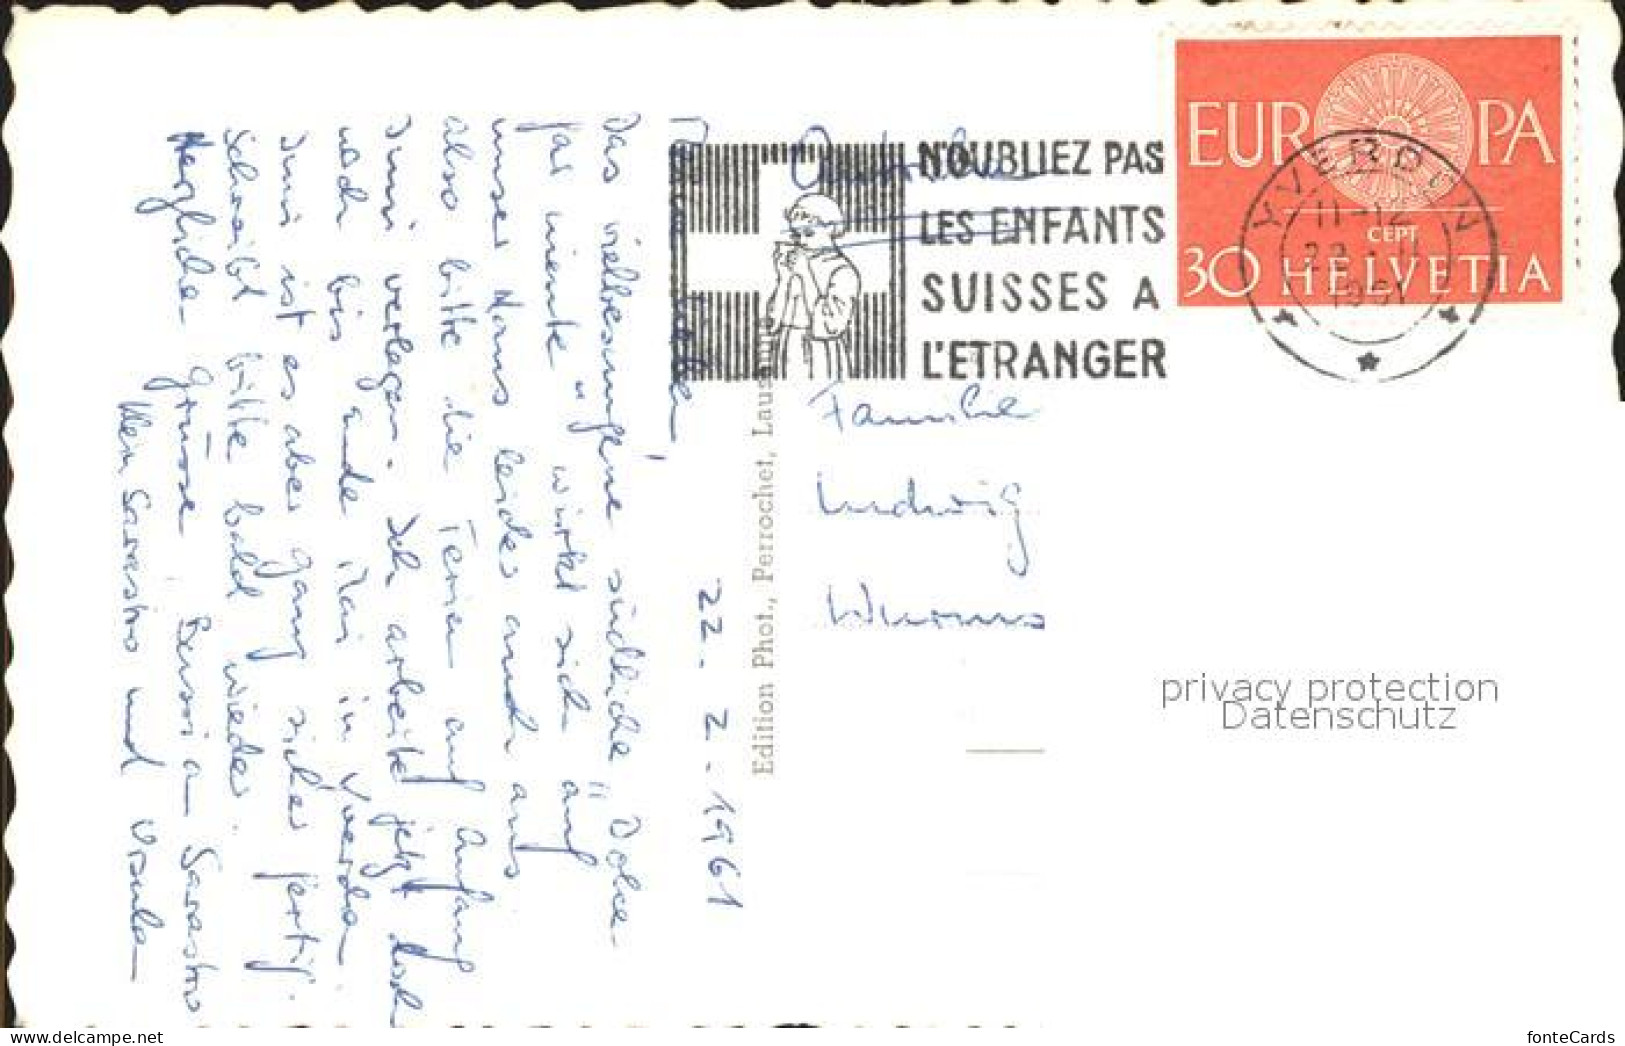 22. 2. 1961
Das vielbesungene südliche "Dolce
far niente" wirkt sich auf
unser Haus leider auch aus
also bitte die Ferien auf Anfang
Juni verlegen. Ich arbeite jetzt doch
noch bis Ende Mai in Yverdon
Juni ist es aber ganz sicher fertig.
Schreibt bitte bald wieder.
Herzliche Grüsse Sarastro
Sarastro und Ursula
Edition Phot., Perrochet, Lausanne
N'OUBLIEZ PAS
LES ENFANTS
SUISSES A
L'ETRANGER
EUROPA
CEPT
30 HELVETIA
YVERDON
11-12
22
1961
Familie
Ludwig
privacy protection
Datenschutz
www.delcampe.net
fonteCards